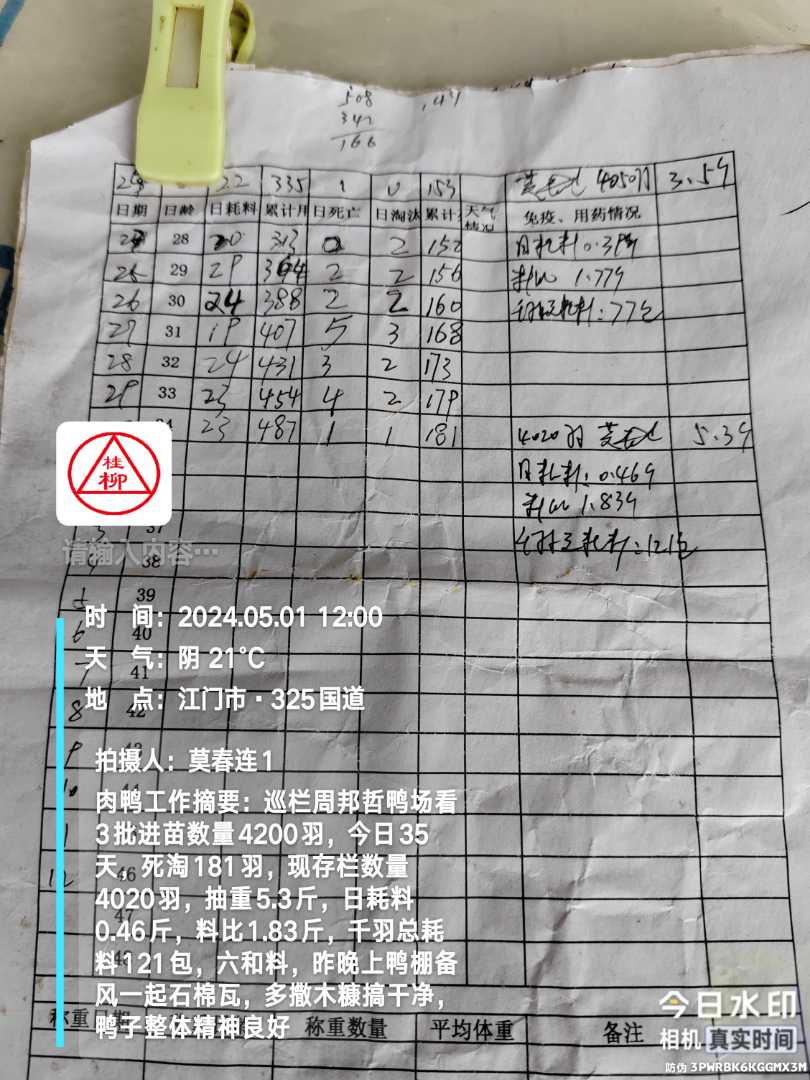 508
342
166
22 335 1 0 153 4050羽 3.5斤
日期 日龄 日耗料 累计用 日死亡 日淘汰 累计 天气情况 免疫、用药情况
28 20 313 0 2 152 日耗料0.39斤
25 29 29 364 2 2 156 料比 1.77斤
26 30 24 388 2 2 160 77包
27 31 19 407 5 3 168
28 32 24 431 3 2 173
29 33 23 454 4 2 179
23 487 1 1 181 4020羽 5.3斤
日耗料:0.46斤
料比 1.83斤
耗料:121包
桂柳
3 37
请输入内容…
4 38
5 39
时 间：2024.05.01 12:00
6 40
天 气：阴 21℃
7 41
地 点：江门市·325国道
8 42
9
拍摄人：莫春连1
10
肉鸭工作摘要：巡栏周邦哲鸭场看
3批进苗数量4200羽，今日35
天，死淘181羽，现存栏数量
12 46
4020羽，抽重5.3斤，日耗料
47
0.46斤，料比1.83斤，千羽总耗
料121包，六和料，昨晚上鸭棚备
风一起石棉瓦，多撒木糠搞干净，
鸭子整体精神良好
称重日期 称重数量 平均体重 备注
今日水印
相机 真实时间
防伪 3PWRBK6KGGMX3M